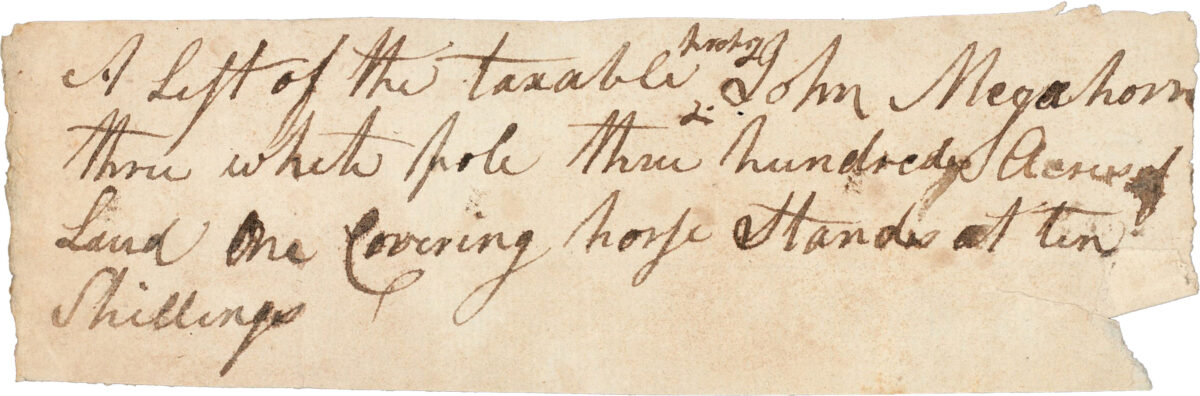 A List of the taxable John Megahorn
thru white pole thru hundred Acres of
Land One Covering horse Stands at ten
Shillings